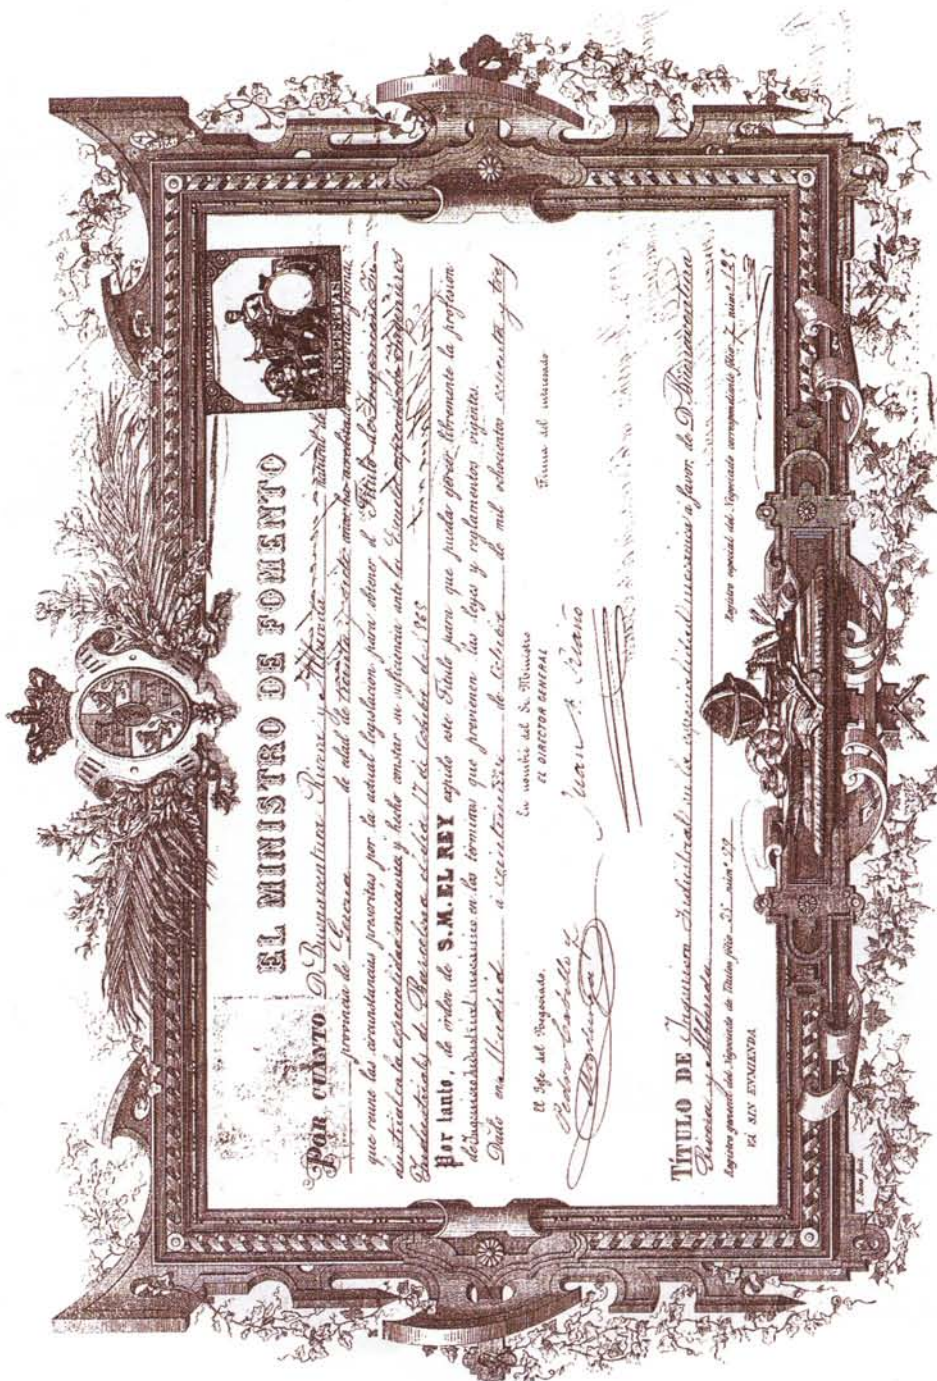 EL MINISTRO DE FOMENTO
POR CUANTO D. Buenaventura Ruiz y Albareda natural de
provincia de Cuenca de edad de treinta y siete años ha
que reune las circunstancias prescritas por la actual legislacion para obtener el Título de Ingeniero In-
dustrial en la especialidad mecanica y hecho constar su suficiencia ante la Escuela especial de Ingenieros
Industriales de Barcelona el dia 17 de Octubre de 1865
Por tanto, de orden de S.M. EL REY expido este Título para que pueda ejercer libremente la profesion
de Ingeniero Industrial mecanico en los terminos que previenen las leyes y reglamentos vigentes.
Dado en Madrid á veintitres de Octubre de mil ochocientos ochenta y tres
En nombre del Sr. Ministro
EL DIRECTOR GENERAL
Firma del interesado
El Jefe del Negociado,
TITULO DE Ingeniero Industrial en la especialidad mecanica á favor de D. Buenaventura
Registro general del Negociado de Titulos fólio 35 núm 39
Registro especial del Negociado correspondiente fólio 7 núm 125
VÁ SIN ENMIENDA